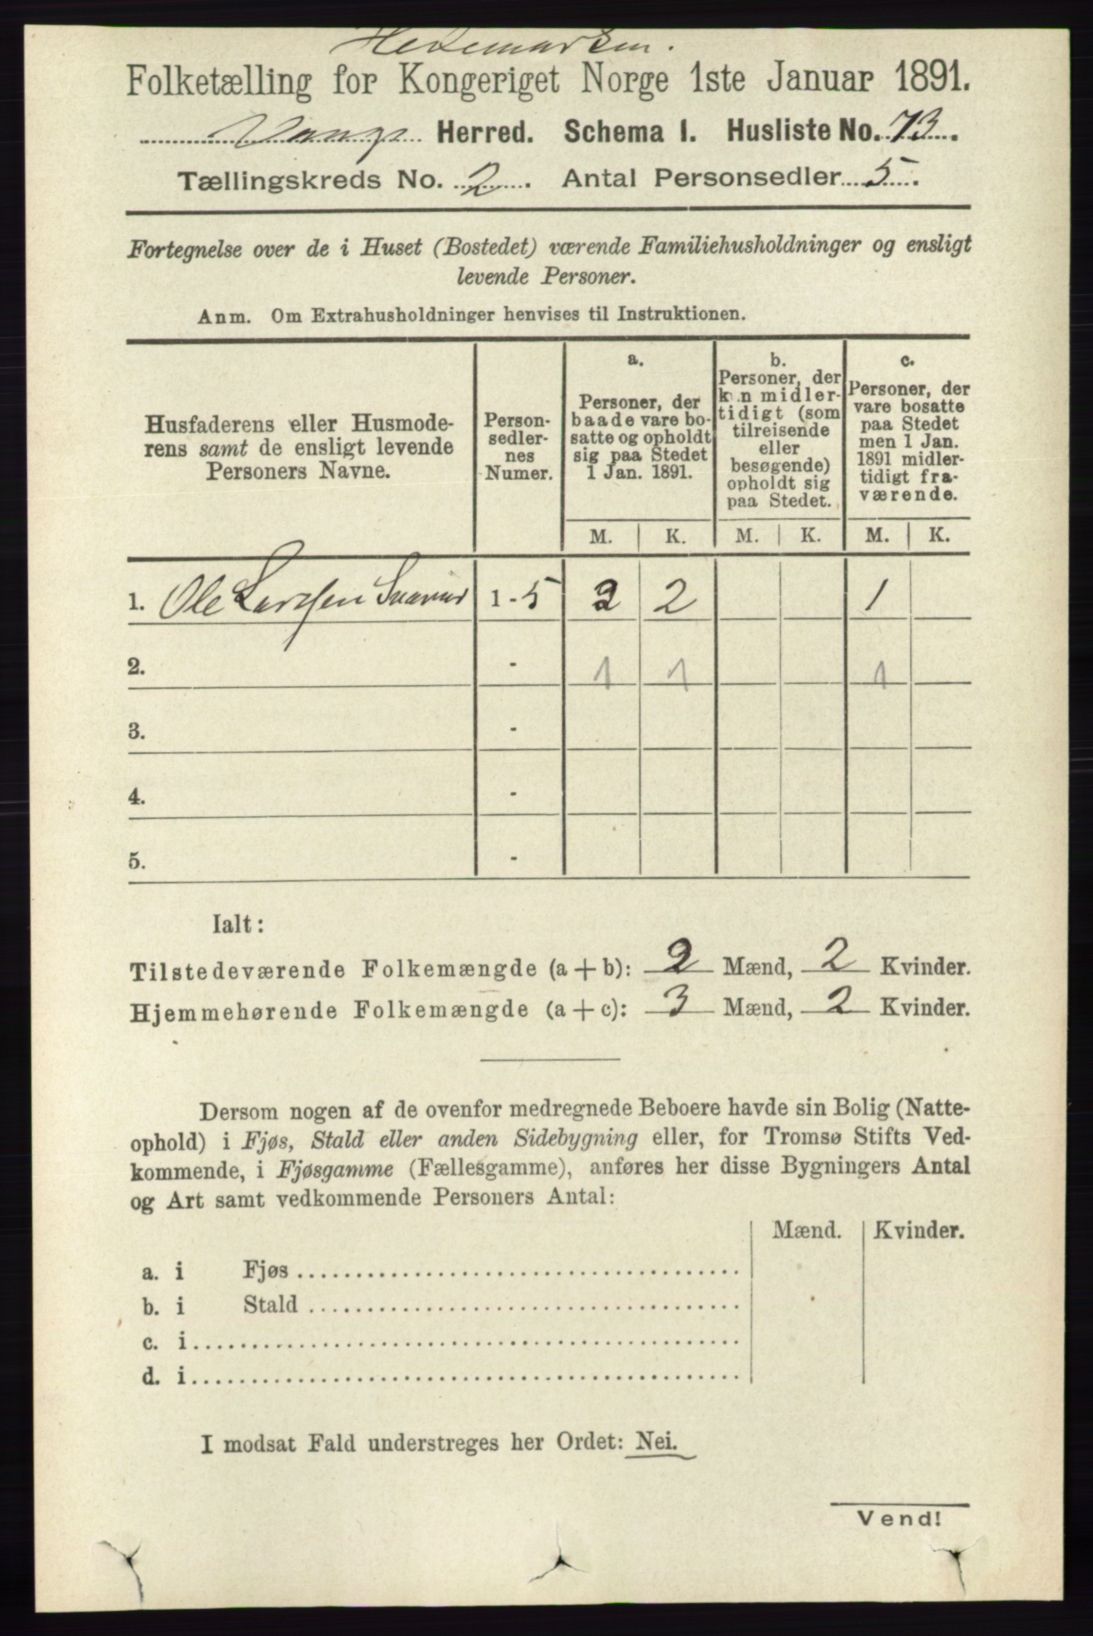 Hedemarken.
Folketælling for Kongeriget Norge 1ste Januar 1891.
Vangs Herred. Schema I. Husliste No. 73.
Tællingskreds No. 2. Antal Personsedler 5.
Fortegnelse over de i Huset (Bostedet) værende Familiehusholdninger og ensligt
levende Personer.
Anm. Om Extrahusholdninger henvises til Instruktionen.
Husfaderens eller Husmode-
rens samt de ensligt levende
Personers Navne.
Person-
sedler-
nes
Numer.
a.
Personer, der
baade vare bo-
satte og opholdt
sig paa Stedet
1 Jan. 1891.
b.
Personer, der
kun midler-
tidigt (som
tilreisende
eller
besøgende)
opholdt sig
paa Stedet.
c.
Personer, der
vare bosatte
paa Stedet
men 1 Jan.
1891 midler-
tidigt fra-
værende.
M. K. M. K. M. K.
1. Ole Larssen 1 - 5 2 2 1
2. - 1 1 1
3. -
4. -
5. -
Ialt:
Tilstedeværende Folkemængde (a + b): 2 Mænd, 2 Kvinder.
Hjemmehørende Folkemængde (a + c): 3 Mænd, 2 Kvinder.
Dersom nogen af de ovenfor medregnede Beboere havde sin Bolig (Natte-
ophold) i Fjøs, Stald eller anden Sidebygning eller, for Tromsø Stifts Ved-
kommende, i Fjøsgamme (Fællesgamme), anføres her disse Bygningers Antal
og Art samt vedkommende Personers Antal:
Mænd. Kvinder.
a. i Fjøs
b. i Stald
c. i
d. i
I modsat Fald understreges her Ordet: Nei.
Vend!